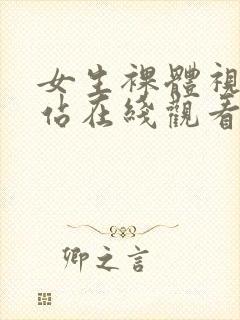 女生裸體視
佔在綫觀看
卿之言